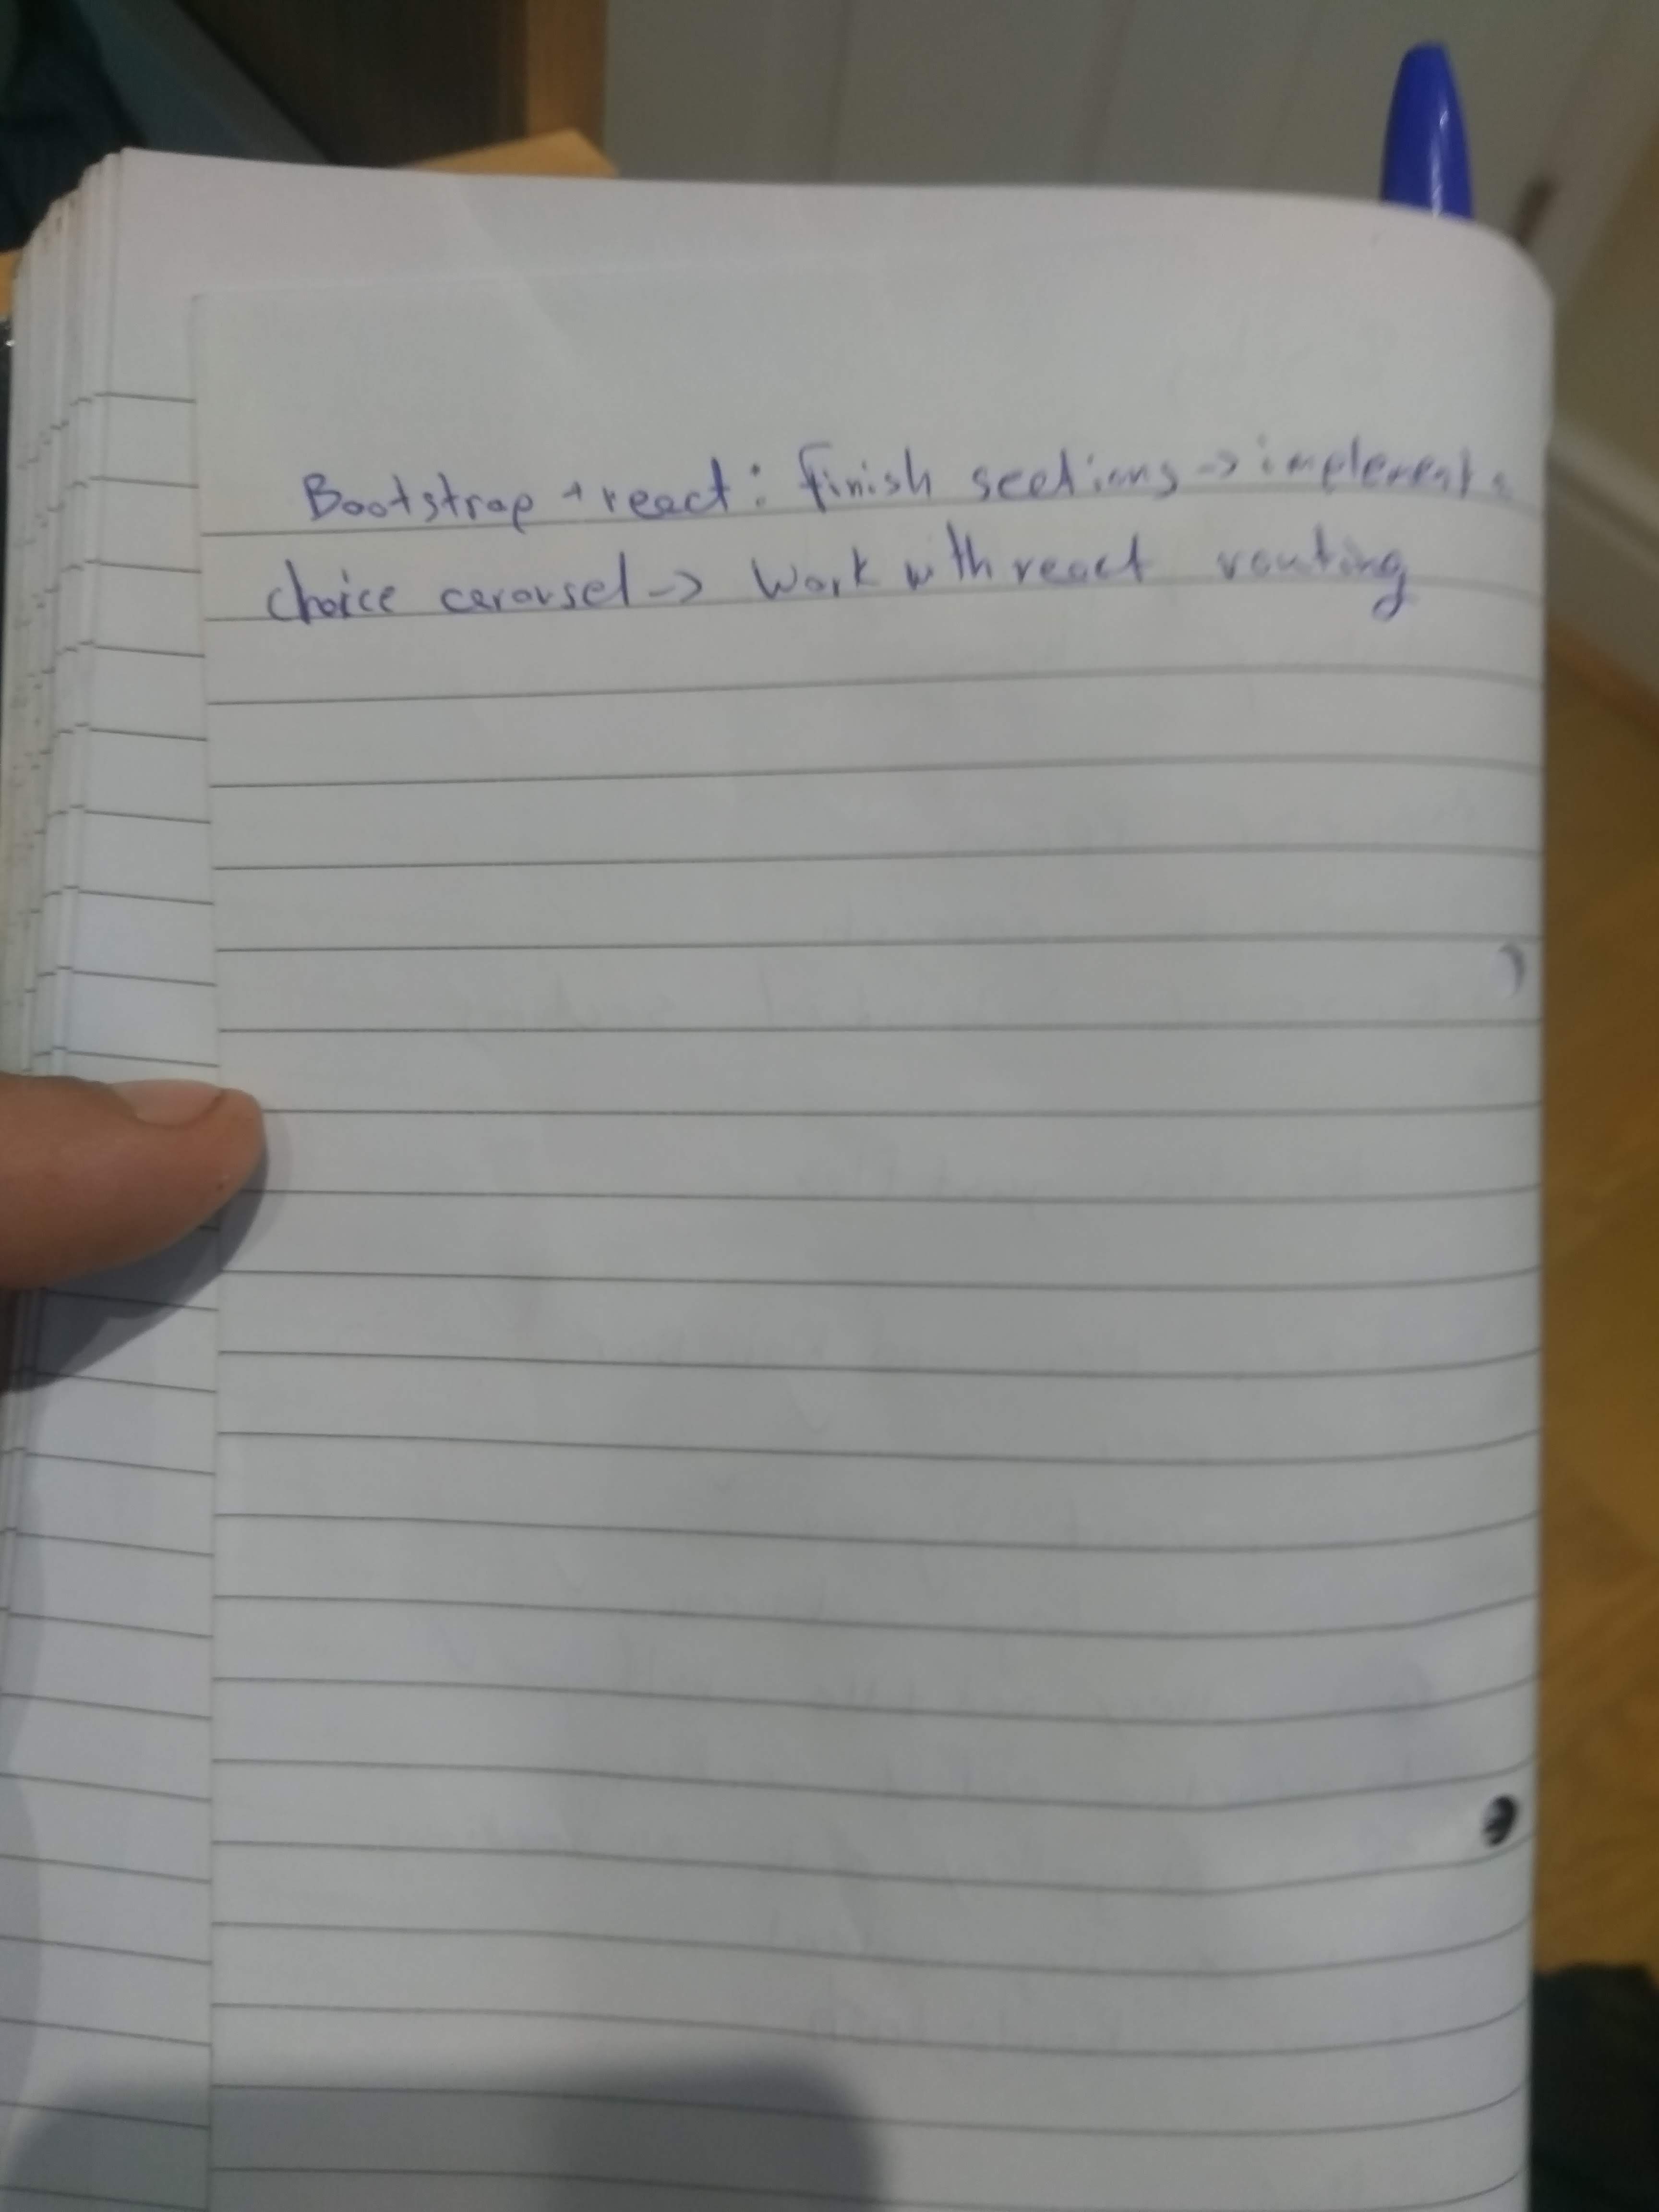 Bootstrap + react: finish sections -> implement a
choice carousel -> Work with react routing